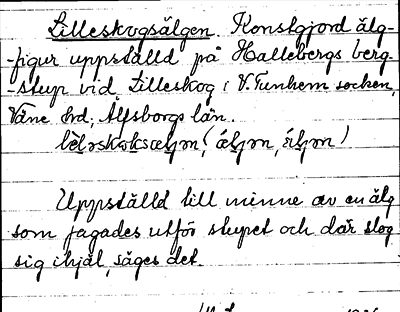 Lilleskogsälgen. Konstgjord älg-
-figur uppställd på Hallebergs berg-
-stup vid Lilleskog i V. Tunhem socken,
Väne hrd; Älfsborgs län.
Uppställd till minne av en älg
som jagades utför stupet och där slog
sig ihjäl, säges det.